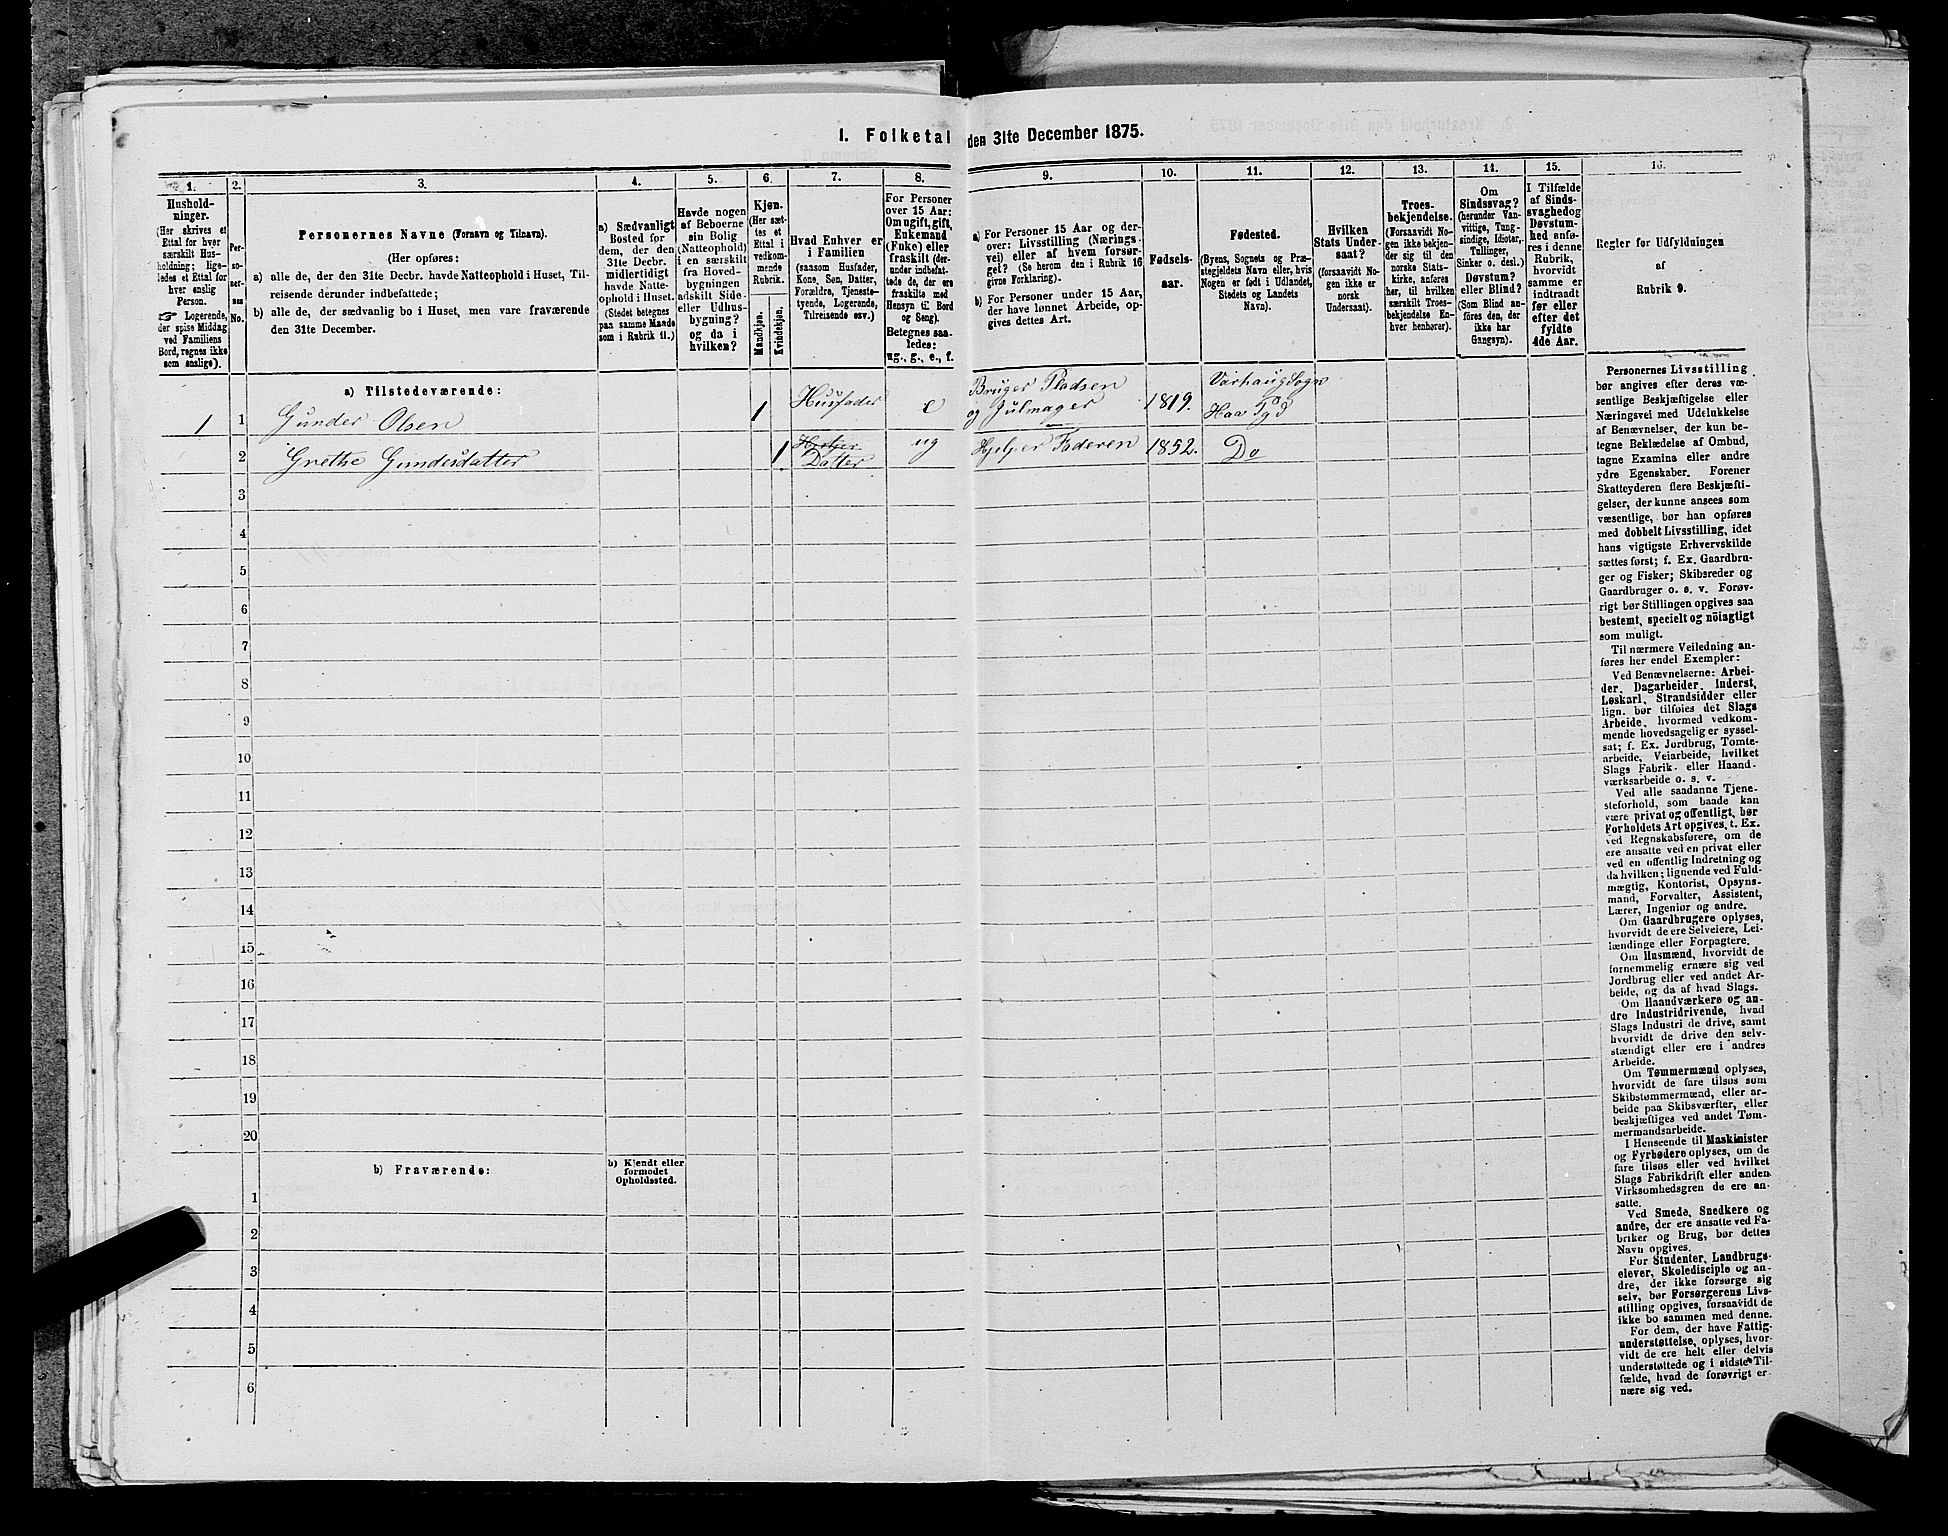 1. Folketal den 31te December 1875.
1.
2.
3.
4.
5.
6.
7.
8.
9.
10.
11.
12.
13.
14.
15.
16.
Hushold-
ninger.
(Her skrives et
Ettal for hver
særskilt Hus-
holdning; lige-
ledes et Ettal for
hver enslig
Person.
☞ Logerende,
der spise Middag
ved Familiens
Bord, regnes ikke
som enslige).
Per-
so-
ner-
nes
No.
Personernes Navne (Fornavn og Tilnavn).
(Her opføres:
a) alle de, der den 31te Decbr. havde Natteophold i Huset, Til-
reisende derunder indbefattede;
b) alle de, der sædvanlig bo i Huset, men vare fraværende
den 31te December.
a) Sædvanligt
Bosted for
dem, der den
31te Decbr.
midlertidigt
havde Natte-
ophold i Huset.
(Stedet betegnes
paa samme Maade
som i Rubrik 11.)
Havde nogen
af Beboerne
sin Bolig
(Natteophold)
i en særskilt
fra Hoved-
bygningen
adskilt Side-
eller Udhus-
bygning?
og da i
hvilken?
Kjøn.
(Her sæt-
tes et
Ettal i
vedkom-
mende
Rubrik.
Mandkjøn.
Kvindekjøn.
Hvad Enhver er
i Familien
(saasom Husfader,
Kone, Søn, Datter,
Forældre, Tjeneste-
tyende, Logerende,
Tilreisende osv.)
For Personer
over 15 Aar:
Om ugift, gift,
Enkemand
(Enke) eller
fraskilt (der-
under indbefat-
tede de, der ere
fraskilte med
Hensyn til Bord
og Seng).
Betegnes saa-
ledes:
ug., g., e., f.
a) For Personer 15 Aar og der-
over: Livsstilling (Nærings-
vei) eller af hvem forsør-
get? (Se herom den i Rubrik 16
givne Forklaring).
b) For Personer under 15 Aar,
der have lønnet Arbeide, op-
gives dettes Art.
Fødsels-
aar.
Fødested.
(Byens, Sognets og Præ-
stegjeldets Navn eller, hvis
Nogen er født i Udlandet,
Stedets og Landets
Navn).
Hvilken
Stats Under-
saat?
(forsaavidt No-
gen ikke er
norsk
Undersaat).
Troes-
bekjendelse.
(Forsaavidt No-
gen ikke bekjen-
der sig til den
norske Stats-
kirke, anføres
her, til hvilken
særskilt Troes-
bekjendelse En-
hver henhører).
Om
Sindssvag?
(herunder Van-
vittige, Tung-
sindige, Idioter,
Tullinger,
Sinker o. desl.)
Døvstum?
eller Blind?
(Som Blind an-
føres den, der
ikke har
Gangsyn).
I Tilfælde
af Sinds-
svaghed og
Døvstum-
hed anfø-
res i denne
Rubrik,
hvorvidt
samme er
indtraadt
før eller
efter det
fyldte
4de Aar.
Regler for Udfyldningen
af
Rubrik 9.
a) Tilstedeværende:
1 1 Gunder Olsen 1 Husfader e Bruger Pladsen og Julmager 1819. Varhaug Sogn Haa Pgd
2 Grethe Gundersdatter 1 Datter ug Hjelper Faderen 1852. Do
3
4
5
6
7
8
9
10
11
12
13
14
15
16
17
18
19
20
b) Fraværende:
b) Kjendt eller
formodet
Opholdssted.
1
2
3
4
5
6
Personernes Livsstilling
bør angives efter deres væ-
sentlige Beskjæftigelse eller
Næringsvei med Udelukkelse
af Benævnelser, der kun be-
tegne Beklædelse af Ombud,
tagne Examina eller andre
ydre Egenskaber. Forener
Skatteyderen flere Beskjæfti-
gelser, der kunne ansees som
væsentlige, bør han opføres
med dobbelt Livsstilling, idet
hans vigtigste Erhvervskilde
sættes først; f. Ex. Gaardbru-
ger og Fisker; Skibsreder og
Gaardbruger o. s. v. Forøv-
rigt bør Stillingen opgives saa
bestemt, specielt og nöiagtigt
som muligt.
Til nærmere Veiledning an-
føres her endel Exempler:
Ved Benævnelserne: Arbei-
der, Dagarbeider, Inderst,
Løskarl, Strandsidder eller
lign. bør tilføies det Slags
Arbeide, hvormed vedkom-
mende hovedsagelig er syssel-
sat; f. Ex. Jordbrug, Tomte-
arbeide, Veiarbeide, hvilket
Slags Fabrik- eller Haand-
værksarbeide o. s. v.
Ved alle saadanne Tjene-
steforhold, som baade kan
være privat og offentligt, bør
Forholdets Art opgives, t. Ex.
ved Regnskabsførere, om de
ere ansatte ved en privat eller
ved en offentlig Indretning og
da hvilken; lignende ved Fuld-
mægtig, Kontorist, Opsyns-
mand, Forvalter, Assistent,
Lærer, Ingeniør og andre.
Om Gaardbrugere oplyses,
hvorvidt de ere Selveiere, Lei-
lændinge eller Forpagtere.
Om Husmænd, hvorvidt de
fornemmelig ernære sig ved
Jordbrug eller ved andet Ar-
beide, og da af hvad Slags.
Om Haandværkere og an-
dre Industridrivende, hvad
Slags Industri de drive, samt
hvorvidt de drive den selv-
stændigt eller ere i andres
Arbeide.
Om Tømmermænd oplyses,
hvorvidt de fare tilsøs som
Skibstømmermænd, eller ar-
beide paa Skibsværfter, eller
beskjæftiges ved andet Tøm-
mermandsarbeide.
I Henseende til Maskinister
og Fyrbødere oplyses, om de
fare tilsøs eller ved hvilket
Slags Fabrikdrift eller anden
Virksomhedsgren de ere an-
satte.
Ved Smede, Snedkere og
andre, der ere ansatte ved Fa-
briker og Brug, bør dettes
Navn opgives.
For Studenter, Landbrugs-
elever, Skoledisciple og an-
dre, der ikke forsørge sig
selv, bør Forsørgerens Livs-
stilling opgives, forsaavidt de
ikke bo sammen med denne.
For dem, der have Fattig-
understøttelse, oplyses, hvor-
vidt de ere helt eller delvis
understøttede og i sidste Til-
fælde, hvad de forøvrigt er-
nære sig ved.